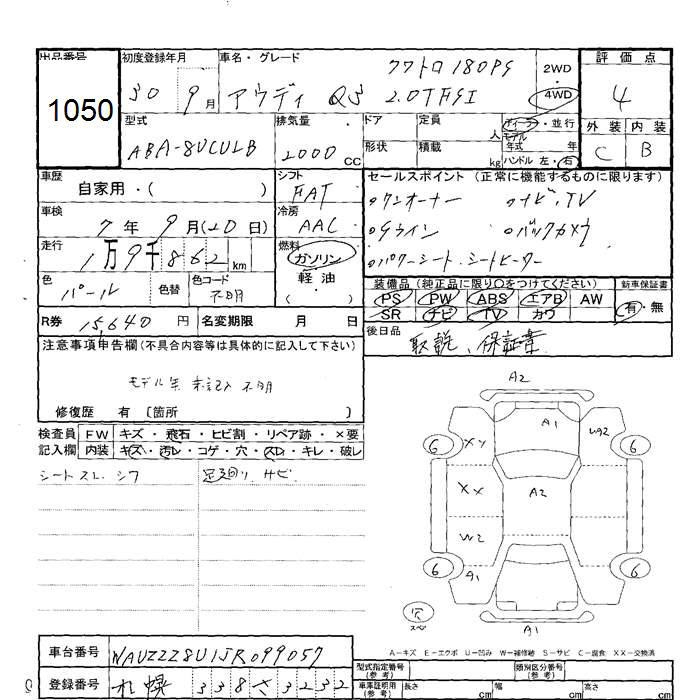 出品番号 初度登録年月 車名・グレード 評価点
1050 30 9月 アウディ Q3 クワトロ180PS 2.0TFSI 2WD 4WD 4
外装 内装
C B
型式 排気量 ドア 定員 人 ディーラー・並行
ABA-8UCULB 2000 CC 形状 積載 kg モデル年式 年
ハンドル 左・右
車歴 自家用・( ) シフト FAT セールスポイント (正常に機能するものに限ります)
車検 7年 9月(20日) 冷房 AAC ・ワンオーナー ・ナビ、TV
・Sライン ・バックカメラ
・パワーシート、シートヒーター
走行 1万9千862km 燃料 ガソリン・軽油・( )
色 パール 色替 色コード 不明
装備品 (純正品に限り○をつけてください) 新車保証書
PS PW ABS エアB AW 有・無
SR ナビ TV カワ
R券 15,640円 名変期限 月 日
後日品 取説、保証書
注意事項申告欄(不具合内容等は具体的に記入して下さい)
モデル年 未記入 不明
修復歴 有 〔箇所 〕
検査員記入欄 FW キズ・飛石・ヒビ割・リペア跡・×要
内装 キズ・汚レ・コゲ・穴・スレ・キレ・破レ
シートスレ、シワ 足廻り、サビ
A2
A1 U92
6 XY 6
XX A2
W2
6 A1 6
穴
スペ A1
A=キズ E=エクボ U=凹み W=補修跡 S=サビ C=腐食 XX=交換済
車台番号 WAUZZZ8U1JR099057
登録番号 札幌 338 さ 3232
型式指定番号(参考) 類別区分番号(参考)
車庫証明用(参考) 長さ cm 幅 cm 高さ cm